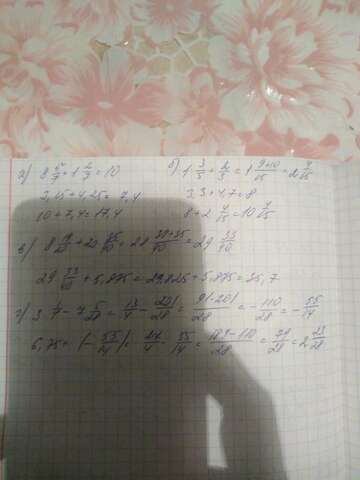 а) 8 5/7 + 1 2/7 = 10
3,15 + 4,25 = 7,4
10 + 7,4 = 17,4
б) 1 3/5 + 2/3 = 1 9+10/15 = 2 4/15
3,3 + 4,7 = 8
8 + 2 4/15 = 10 4/15
в) 8 19/20 + 20 35/40 = 28 38+35/40 = 29 33/40
29 33/40 + 5,875 = 29,825 + 5,875 = 35,7
г) 3 1/4 - 7 5/28 = 13/4 - 201/28 = 91-201/28 = - 110/28 = - 55/14
6,75 + (- 55/14) = 27/4 - 55/14 = 189-110/28 = 79/28 = 2 23/28